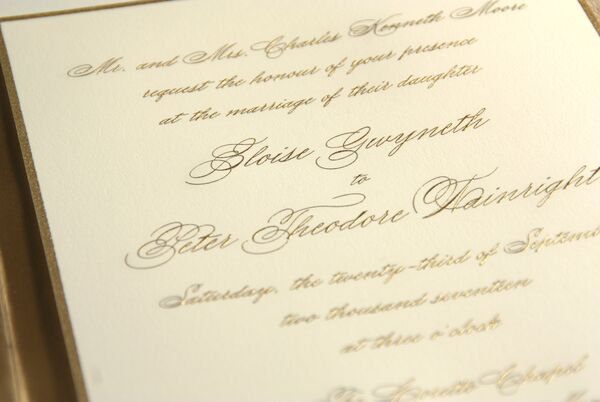 Mr. and Mrs. Charles Kenneth Moore
request the honour of your presence
at the marriage of their daughter
Eloise Gwyneth
to
Peter Theodore Wainright
Saturday, the twenty-third of Septemb
two thousand seventeen
at three o'clock
Loretto Chapel